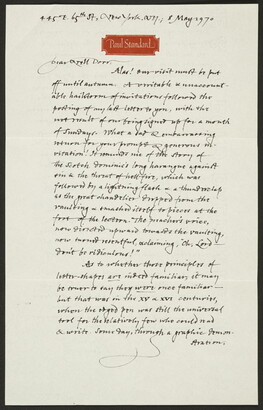 445 E. 65th St, New York, NY, 8 May 1970
Paul Standard
Dear Door:
Alas! our visit must be put
off until autumn. A veritable & unaccount-
able hailstorm of invitations followed the
posting of my last letter to you, with the
net result of our being signed up for a month
of Sundays. What a sad & embarrassing
return for your prompt & generous in-
vitation! It reminds me of the story of
the Scotch dominie's long harangue against
sin & the threat of hell-fire, which was
followed by a lightning flash & a thunderclap
as the great chandelier dropped from the
vaulting & smashed itself to pieces at the
foot of the lectern. The preacher's voice,
now directed upward towards the vaulting,
now turned resentful, exclaiming, Oh, Lord
don't be ridiculous!"
As to whether those principles of
letter-shapes are indeed familiar, it may
be truer to say they were once familiar—
but that was in the XV & XVI centuries,
when the edged pen was still the universal
tool for the relatively few who could read
& write. Some day, through a graphic demon-
stration.